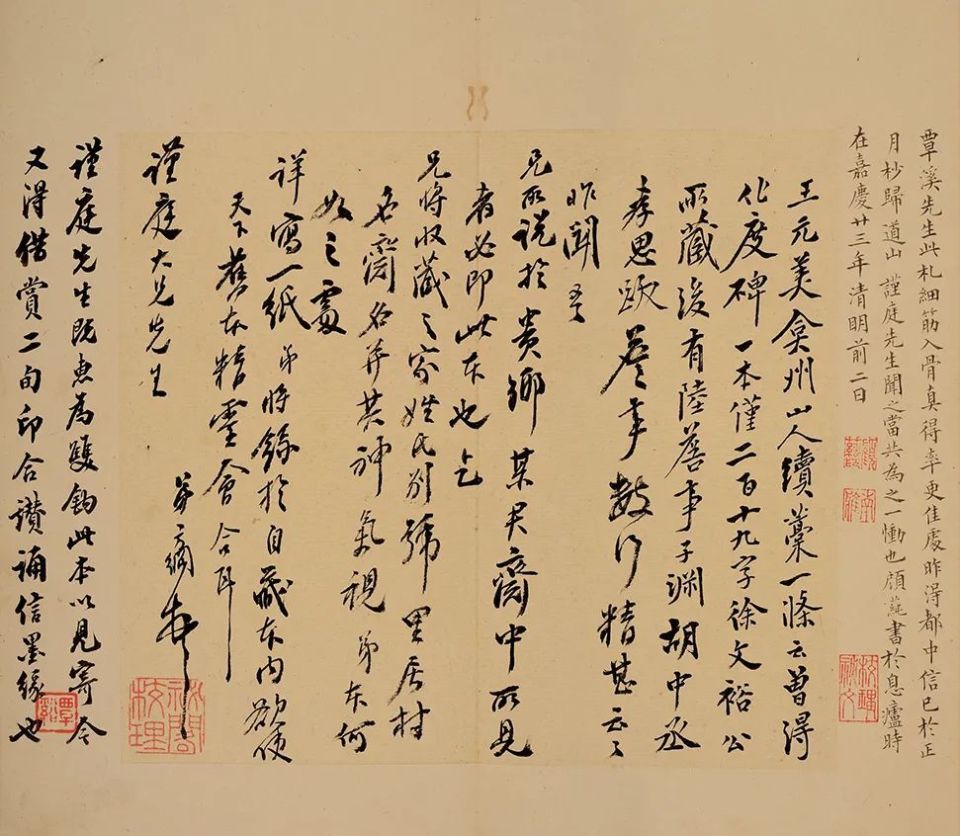 覃溪先生此札細筋入骨真得率更佳處昨得都中信已於正
月杪歸道山謹庭先生聞之當共為之一慟也顧蒓書於息壚時
在嘉慶廿三年清明前二日
王元美弇州山人續藁一條云曾得
化度碑一本僅二百十九字徐文裕公
所藏後有陸詹事子淵胡中丞
孝思跋詹事數行精甚云々
昨聞吾
兄所說於貴鄉某君齋中所見
者必即此本也乞
兄將收藏之家姓氏別號里居村
名齋名并其神氣視弟本何
如之處
詳寫一紙弟將錄於自藏本内欲使
天下舊本精靈會合耳
謹庭大兄先生
弟方綱
謹庭先生既惠為雙鉤此本以見寄今
又得借賞二句印合讚誦信墨緣也
覃谿